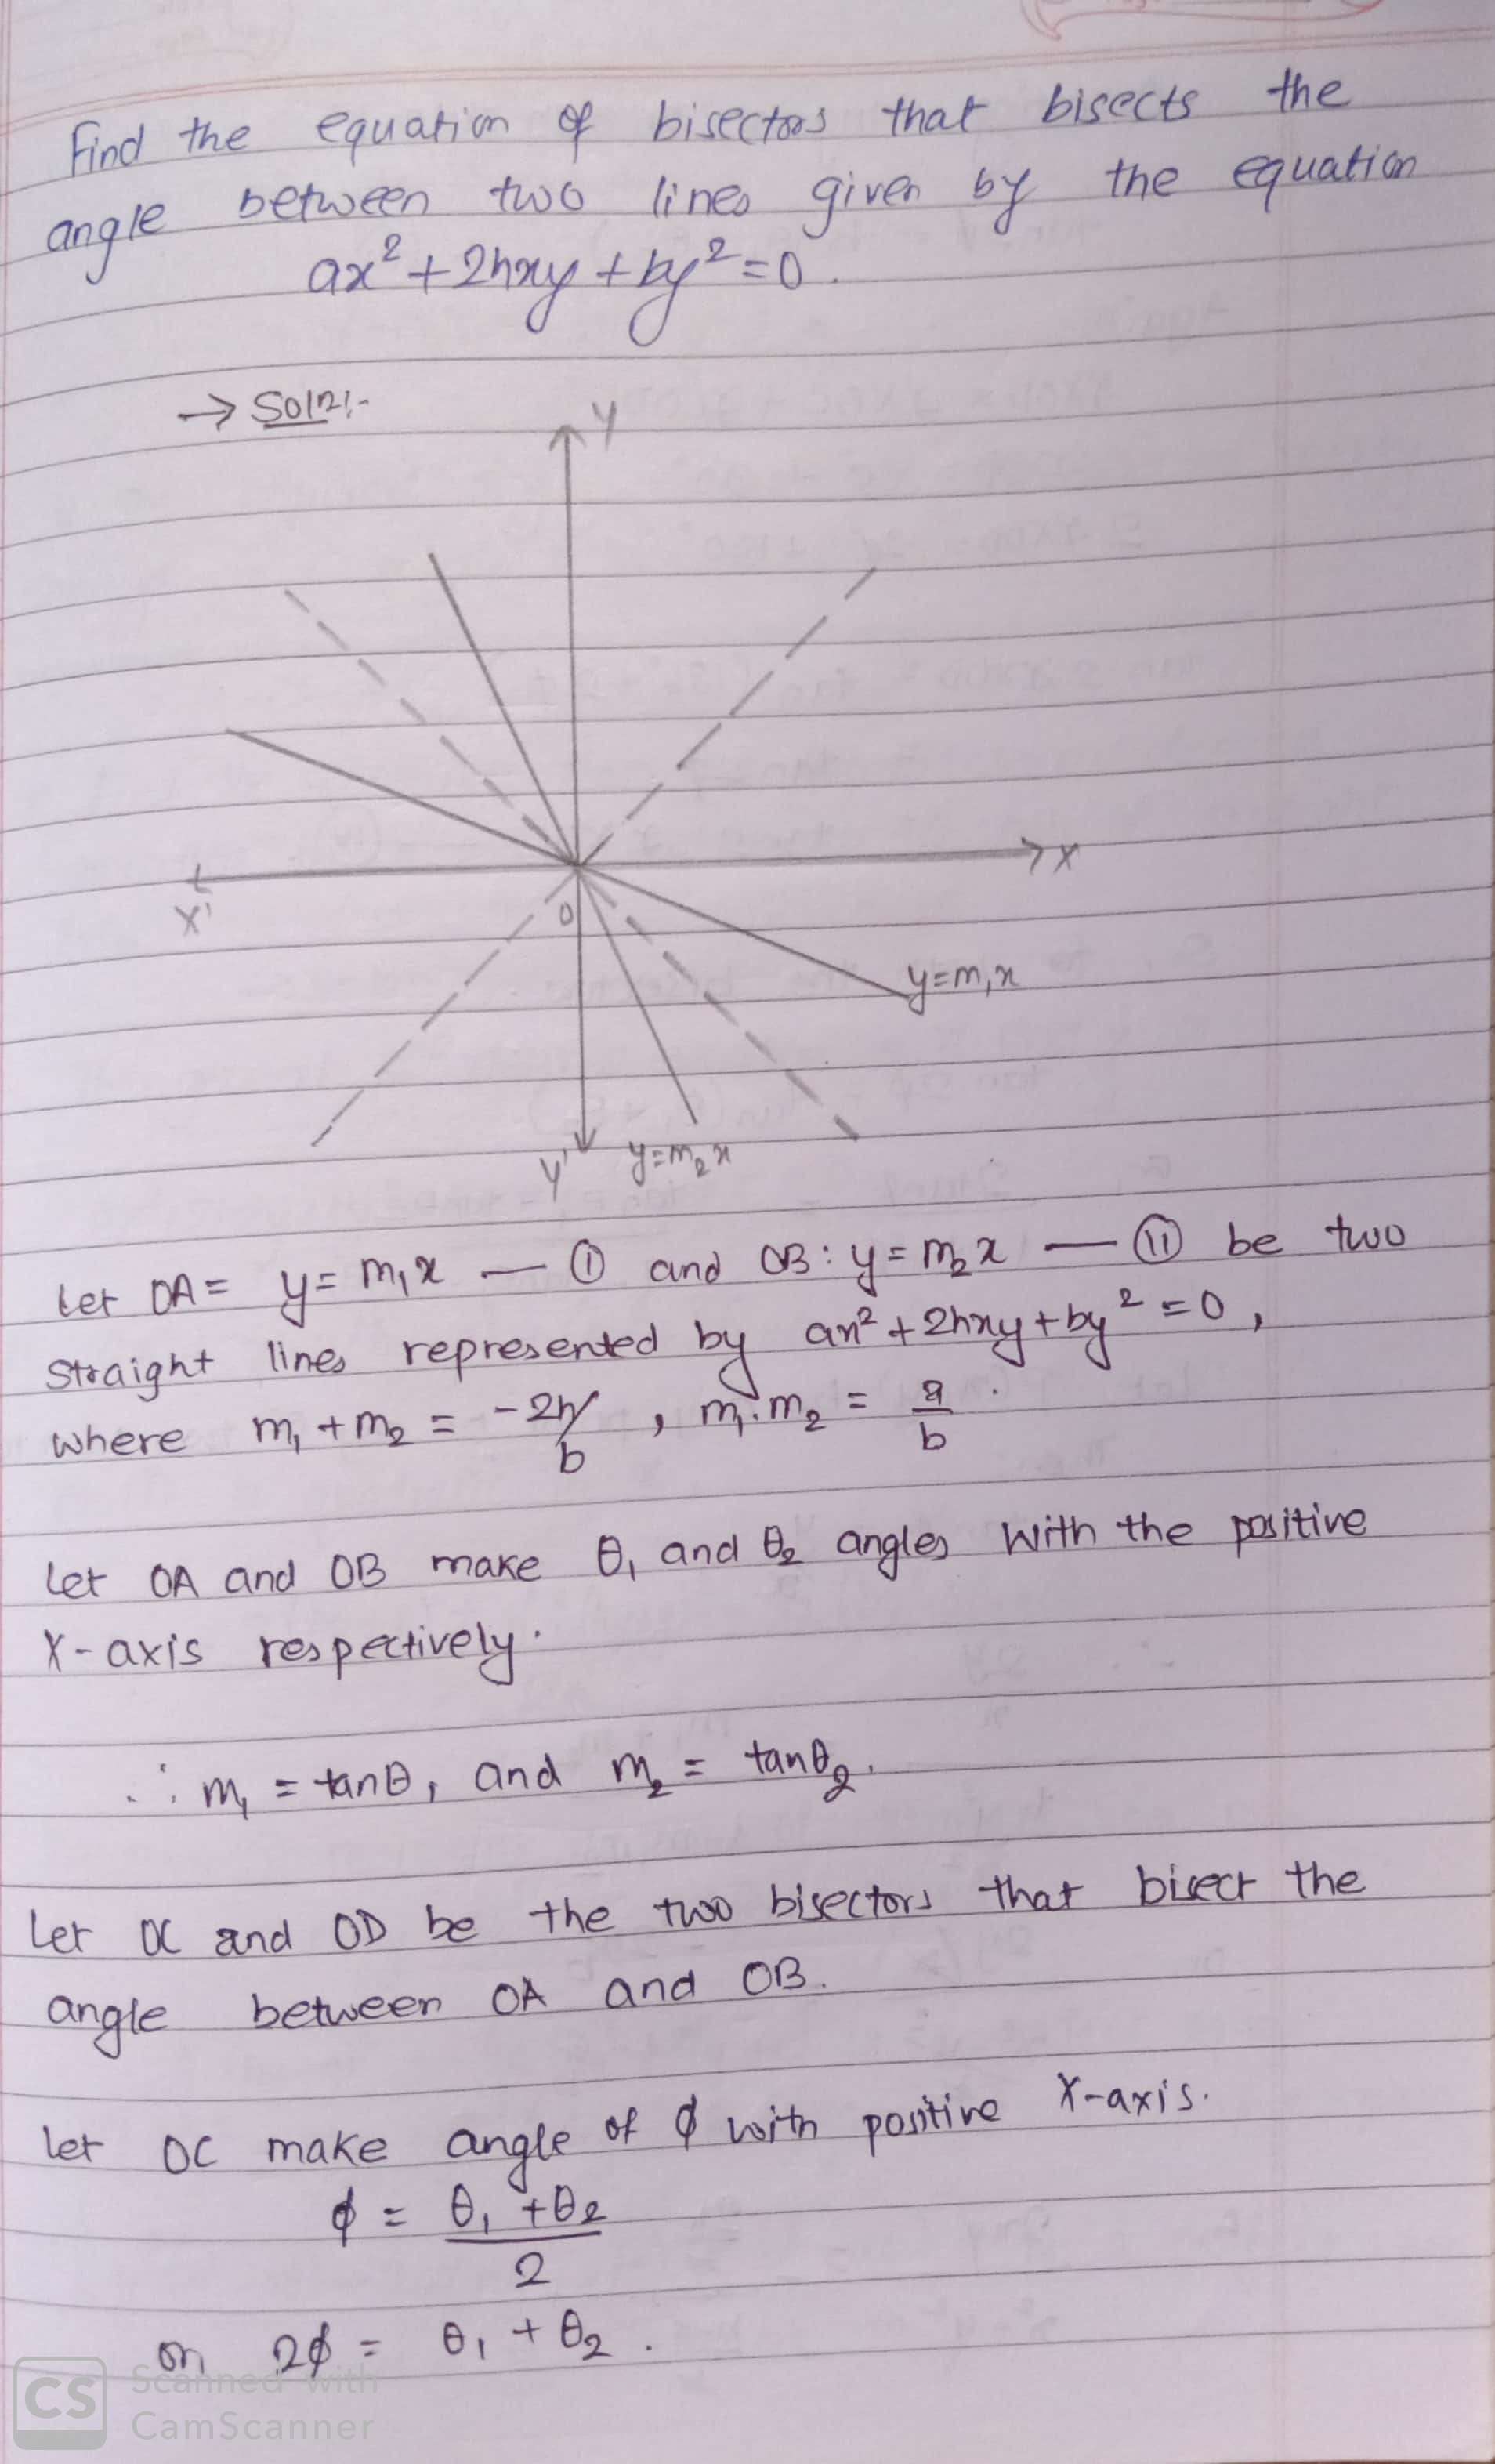 Find the equation of bisectors that bisects the
angle between two lines given by the equation
ax²+2hxy+by²=0.
→ Soln:-
Y
X
X'
O
y=m₁x
Y' y=m₂x
Let OA = y = m₁x — ① and OB : y = m₂x — ⑪ be two
straight lines represented by ax²+2hxy+by²=0,
where m₁+m₂ = -2h/b , m₁.m₂ = a/b .
Let OA and OB make θ₁ and θ₂ angles with the positive
X-axis respectively.
∴ m₁ = tanθ₁ and m₂ = tanθ₂.
Let OC and OD be the two bisectors that bisect the
angle between OA and OB.
Let OC make angle of ϕ with positive X-axis.
ϕ = θ₁+θ₂/2
or 2ϕ = θ₁ + θ₂ .
CS Scanned with
CamScanner